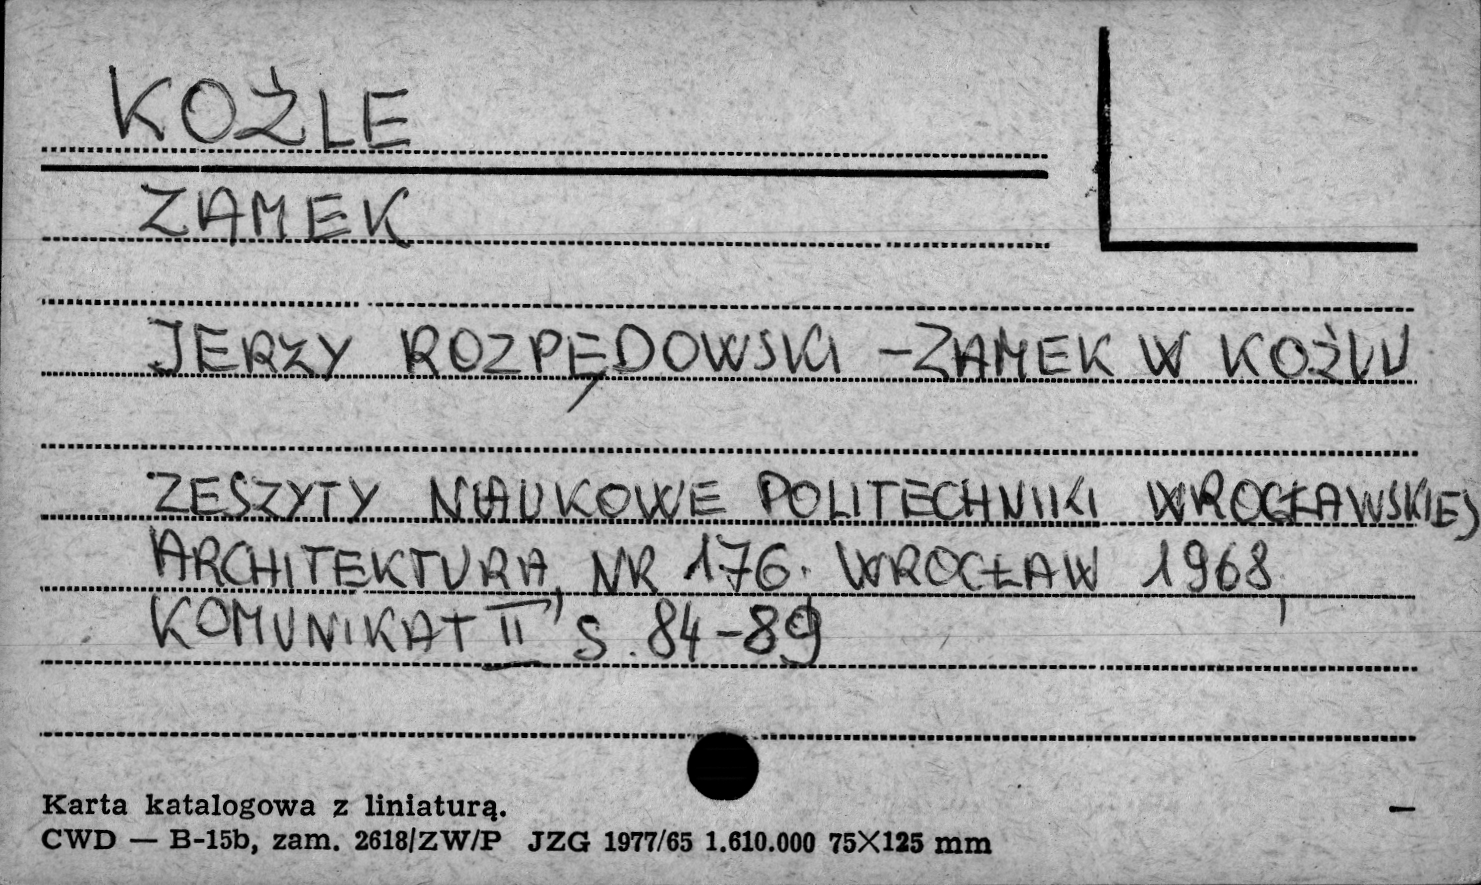 KOŹLE
ZAMEK
JERZY ROZPĘDOWSKI – ZAMEK W KOŹLU
ZESZYTY NAUKOWE POLITECHNIKI WROCŁAWSKIEJ
ARCHITEKTURA, NR 176. WROCŁAW 1968,
KOMUNIKAT II, S. 84-89
Karta katalogowa z liniaturą.
CWD — B-15b, zam. 2618/ZW/P JZG 1977/65 1.610.000 75X125 mm